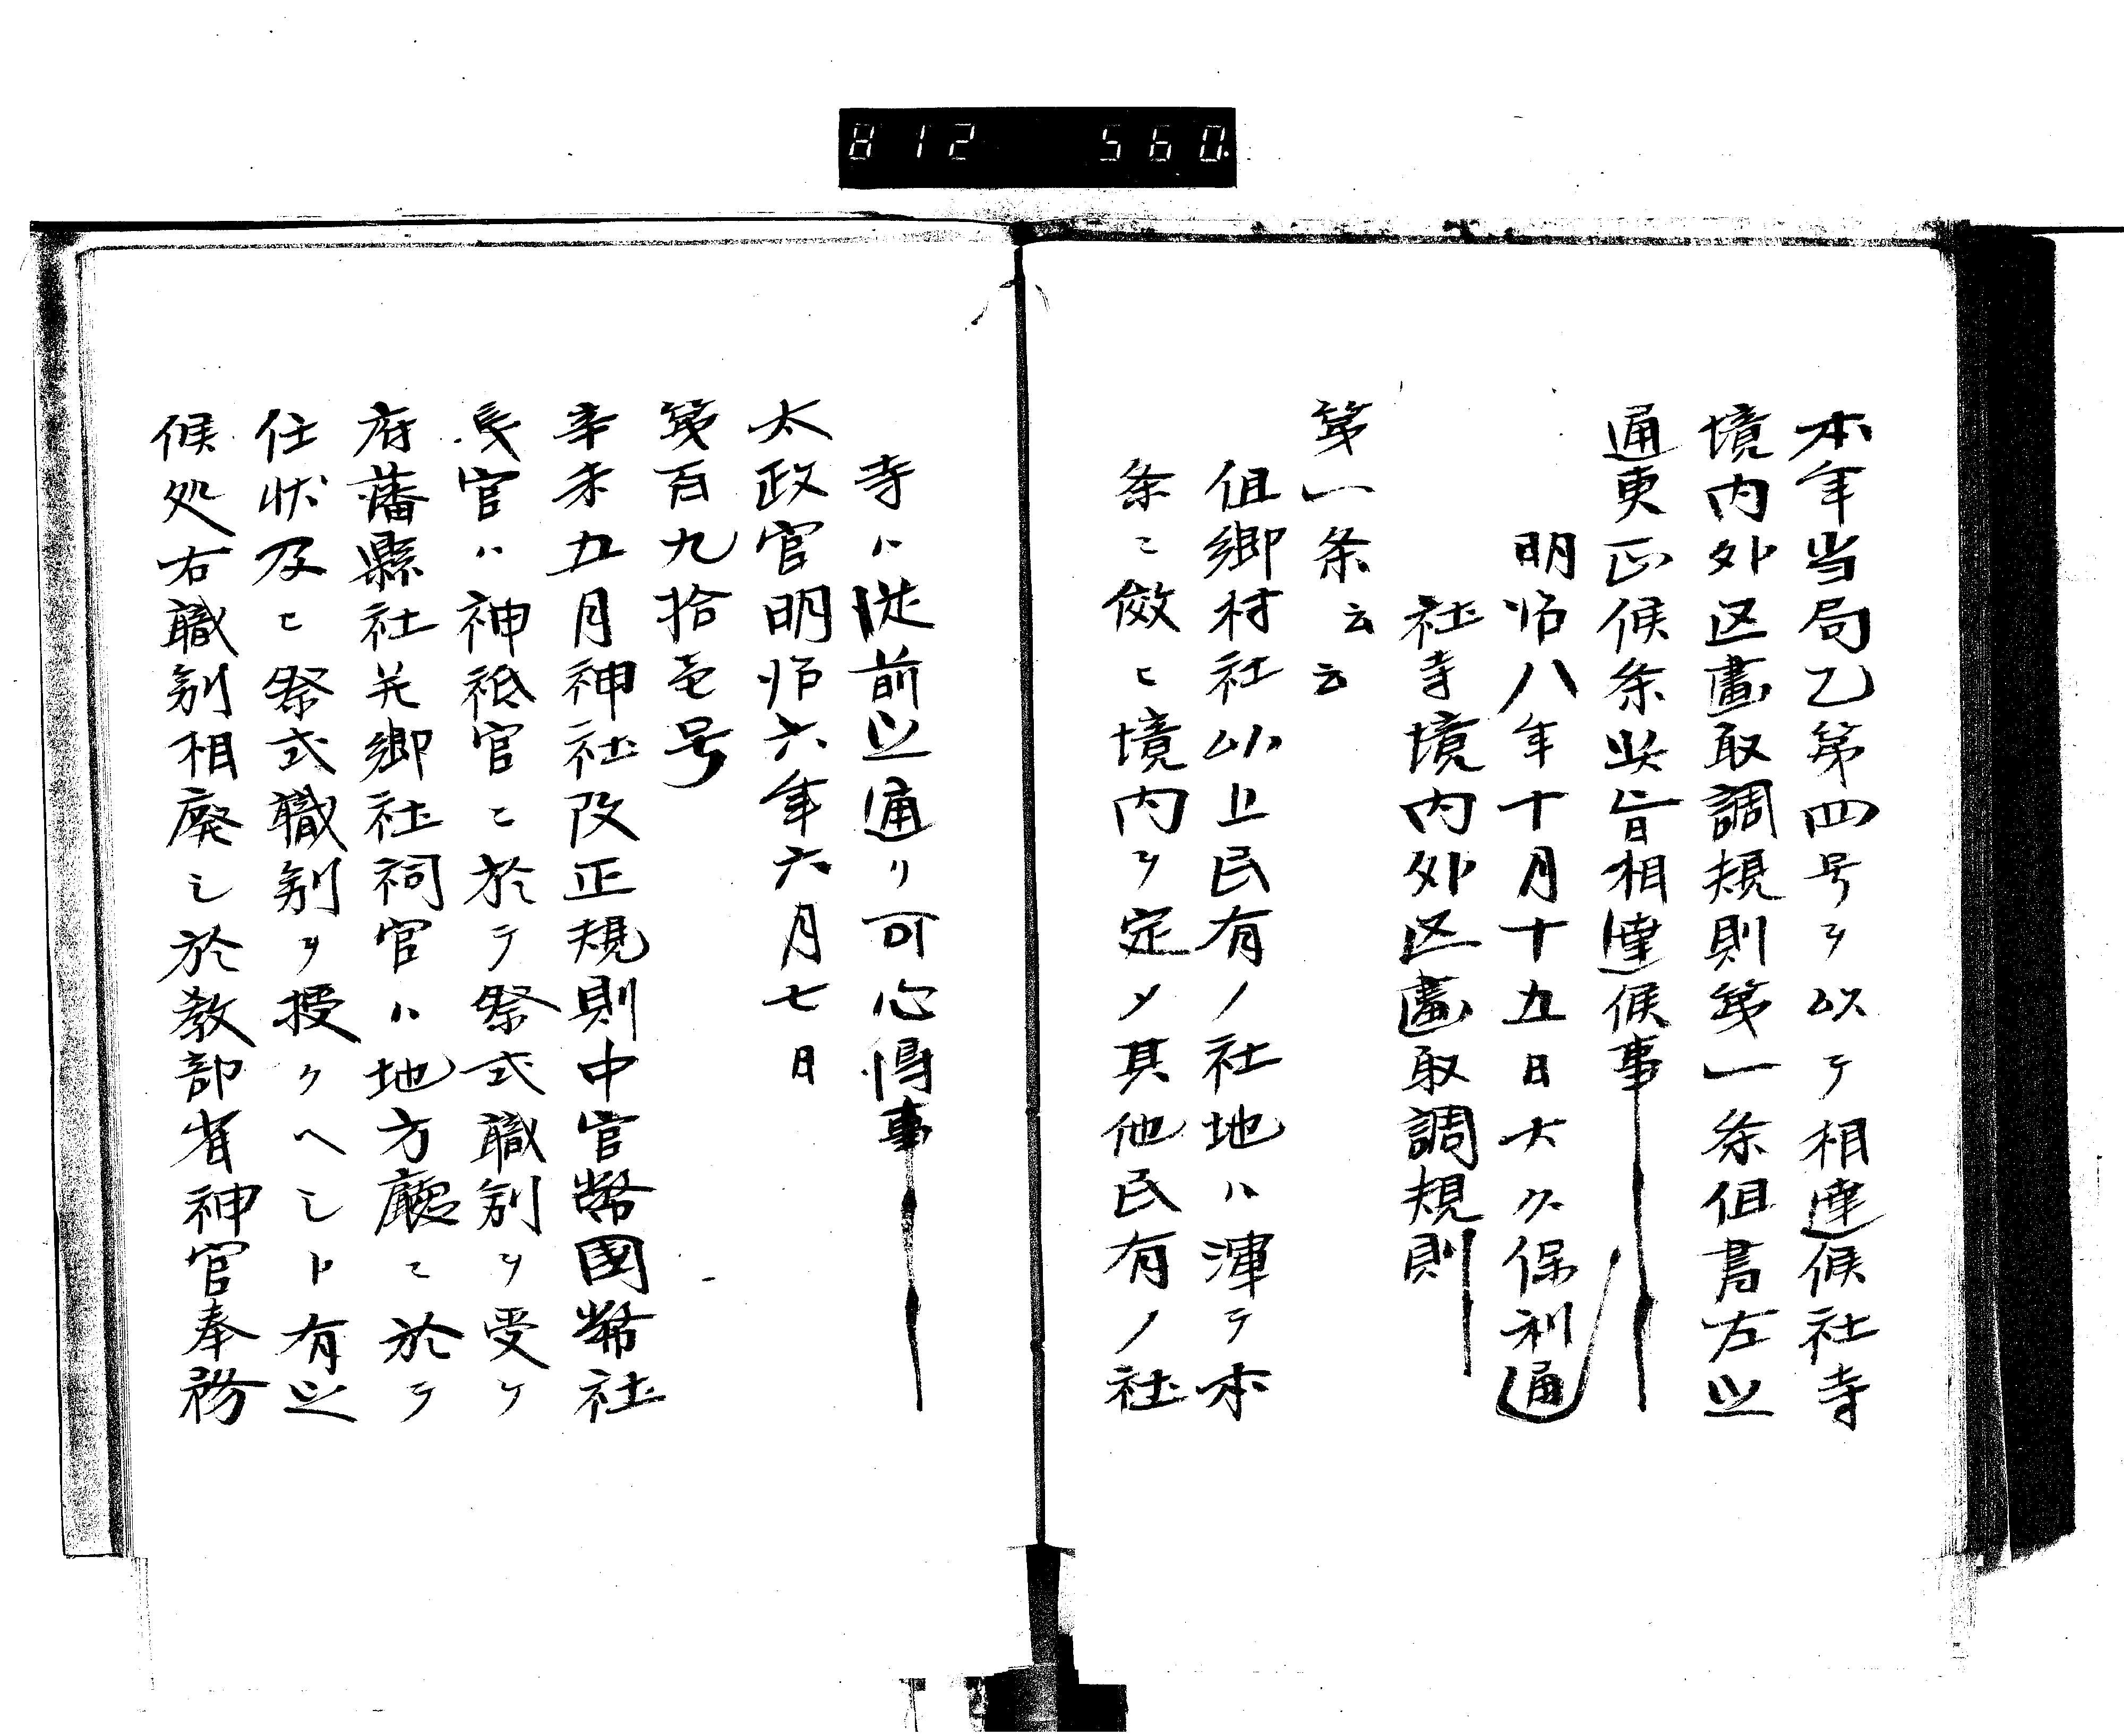 812 560
本年当局乙第四号ヲ以テ相達候社寺
境内外区畫取調規則第一条但書左之
通更正候条此旨相達候事
明治八年十月十五日大久保利通
社寺境内外区畫取調規則
第一条云云
但郷村社以上民有ノ社地ハ渾テ本
条ニ倣ヒ境内ヲ定メ其他民有ノ社
寺ハ従前之通リ可心得事
太政官明治六年六月七日
第百九拾壱号
辛未五月神社改正規則中官幣國幣社
長官ハ神祇官ニ於テ祭式職制ヲ受ケ
府藩縣社并郷社祠官ハ地方廳ニ於テ
任状及ヒ祭式職制ヲ授クヘシト有之
候処右職制相廃シ於教部省神官奉務